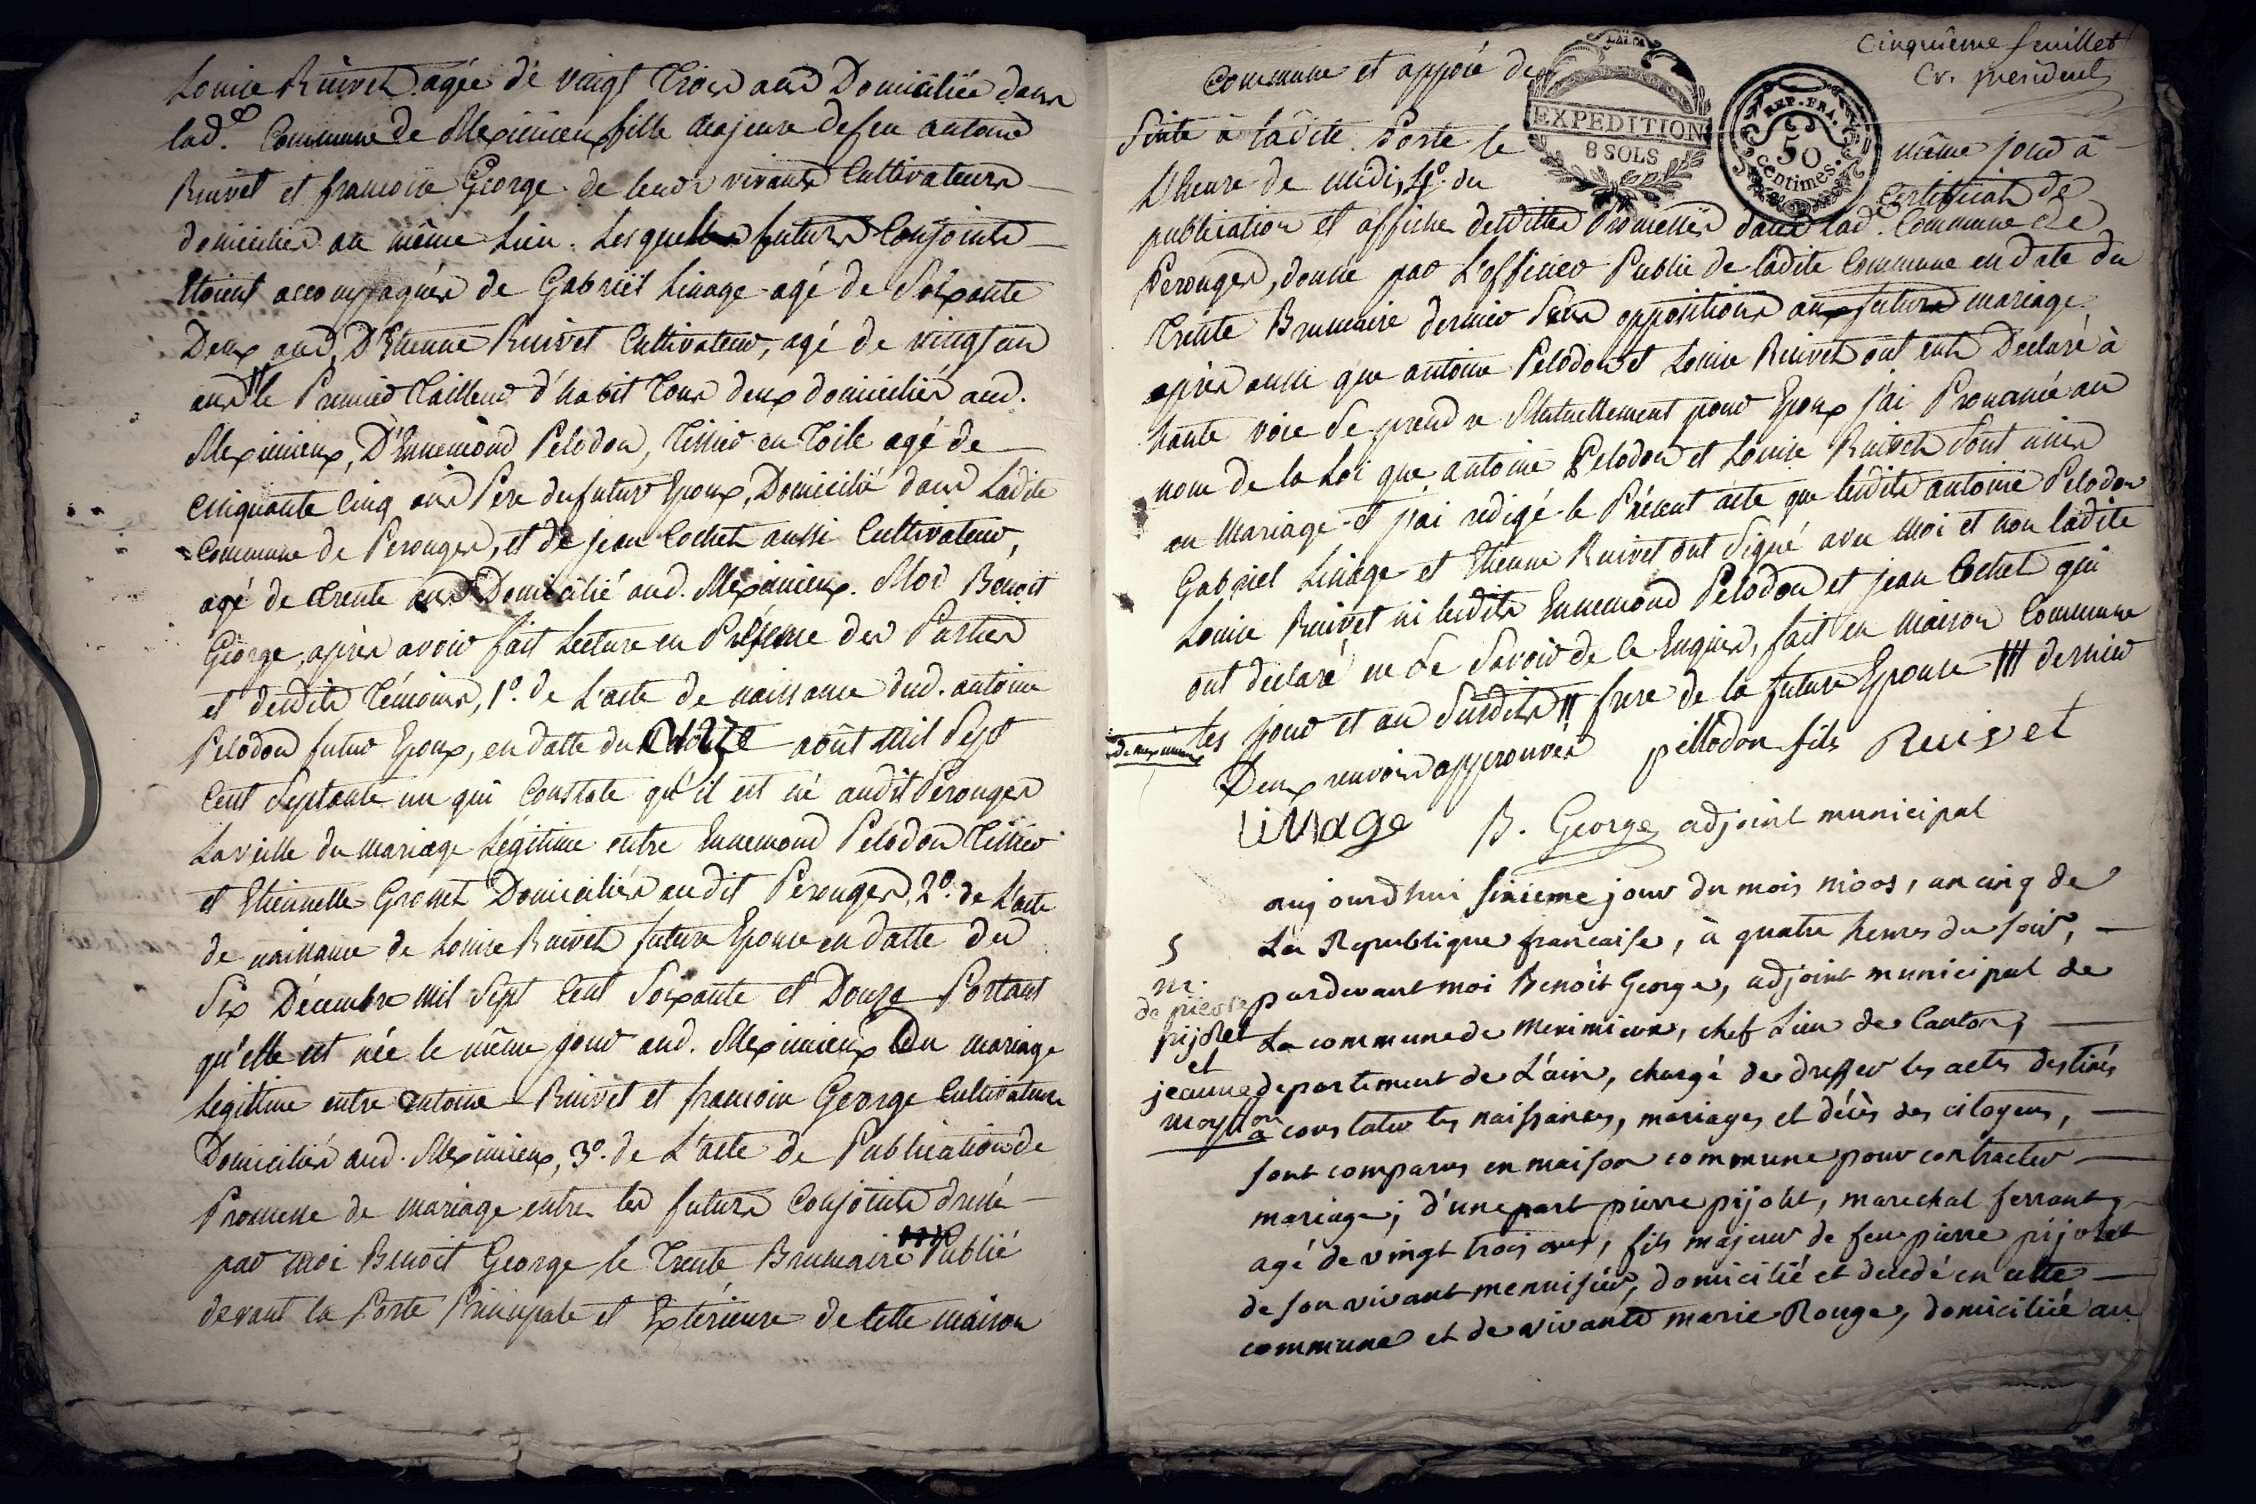 Louise Ruivet agée de vingt Trois ans Domiciliée dans
lad.e Commune de Meximieux fille majeure de feu antoine
Ruivet et francoise George de leurs vivants Cultivateurs
domiciliés au même Lieu. Lesquels futurs Conjoints
Etoient accompagnés de Gabriel Linage agé de Soixante
Deux ans, D'Etienne Ruivet Cultivateur, agé de vingt un
ans le Premier Tailleur d'habit Tous deux domiciliés aud.
Meximieux, D'Ennemond Pelodon, Tissier en Toile agé de
cinquante Cinq ans Pere du futur Epoux, Domicilié dans Ladite
Commune de Perouges, et de jean Cochet aussi Cultivateur,
agé de Trente ans Domicilié aud. Meximieux. Moi Benoit
George, après avoir fait Lecture en Présence des Parties
et desdits Témoins, 1.o de L'acte de naissance dud. antoine
Pelodon futur Epoux, en datte du août mil Sept
Cent Septante un qui Constate qu'il est né audit Perouges
La ville du mariage Légitime entre Ennemond Pelodon Tissier
et Etiennette Gronet Domiciliés audit Perouges, 2.o de L'acte
de naissance de Louise Ruivet future Epouse en datte du
Six Décembre mil Sept Cent Soixante et Douze Portant
qu'elle est née le même jour aud. Meximieux Du mariage
Legitime entre antoine Ruivet et francoise George Cultivateurs
Domiciliés aud. Meximieux, 3.o de L'acte de Publication de
Promesse de mariage entre les futurs Conjoints dressé
par moi Benoit George le Trente Brumaire Publié
devant la Porte Principale et Extérieure de cette maison
Cinquième feuillet
Cr. president
LALOI
EXPEDITION
8 SOLS
REP. FRA.
50
centimes.
Commune et apposé de
Suite à ladite Porte le même jour à
L'heure de midi, 4.o du Certificat de
publication et affiches desdittes Promesses dans lad. Commune de
Perouges, donné par L'officier Public de ladite Commune en date du
Trente Brumaire dernier Sans oppositions aux futurs mariage,
après aussi que antoine Pelodon et Louise Ruivet ont eut Declaré à
haute voix Se prendre Mutuellement pour Epoux j'ai Prononcé au
nom de la Loi que antoine Pelodon et Louise Ruivet Sont unis
en Mariage et j'ai redigé le Présent acte que lesdits antoine Pelodon
Gabriel Linage et Etienne Ruivet ont Signé avec Moi et non ladite
Louise Ruivet ni lesdits Ennemond Pelodon et jean Cochet qui
ont declaré ne Le Savoir de Ce Enquis, fait en maison Commune
de meximieux les jour et an Susdits frere de la future Epouse dernier
Deux renvois approuvés pellodon fils Ruivet
Linage B. George adjoint municipal
aujourdhui sixieme jour du mois nivos, an cinq de
La Republique francaise, à quatre heures du soir,
pardevant moi Benoit George, adjoint municipal de
La commune de Meximieux, chef Lieu de Canton,
departement de L'ain, chargé de dresser les actes destinés
a constater les naissances, mariages et décès des citoyens,
5
m.
de pierre
pijolet
et
jeanne
moyllon
sont comparus en maison commune pour contracter
mariage; d'une part pierre pijolet, marechal ferrant,
agé de vingt trois ans, fils majeur de feu pierre pijolet
de son vivant menuisier, domicilié et decedé en cette
commune et de vivante marie Rouge, domiciliée au